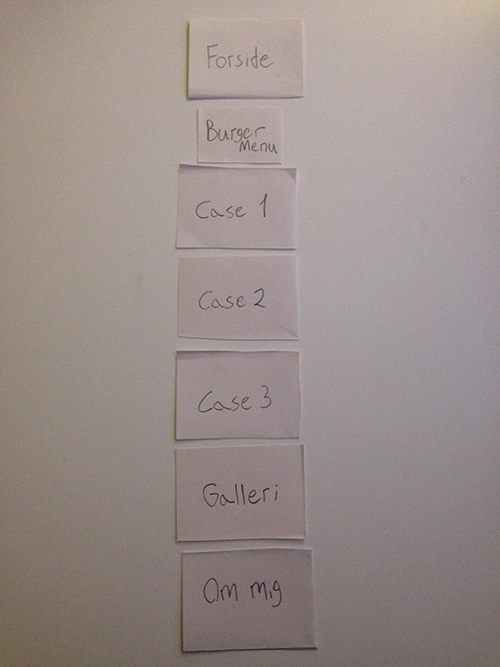 Forside
Burger
Menu
Case 1
Case 2
Case 3
Galleri
Om mig